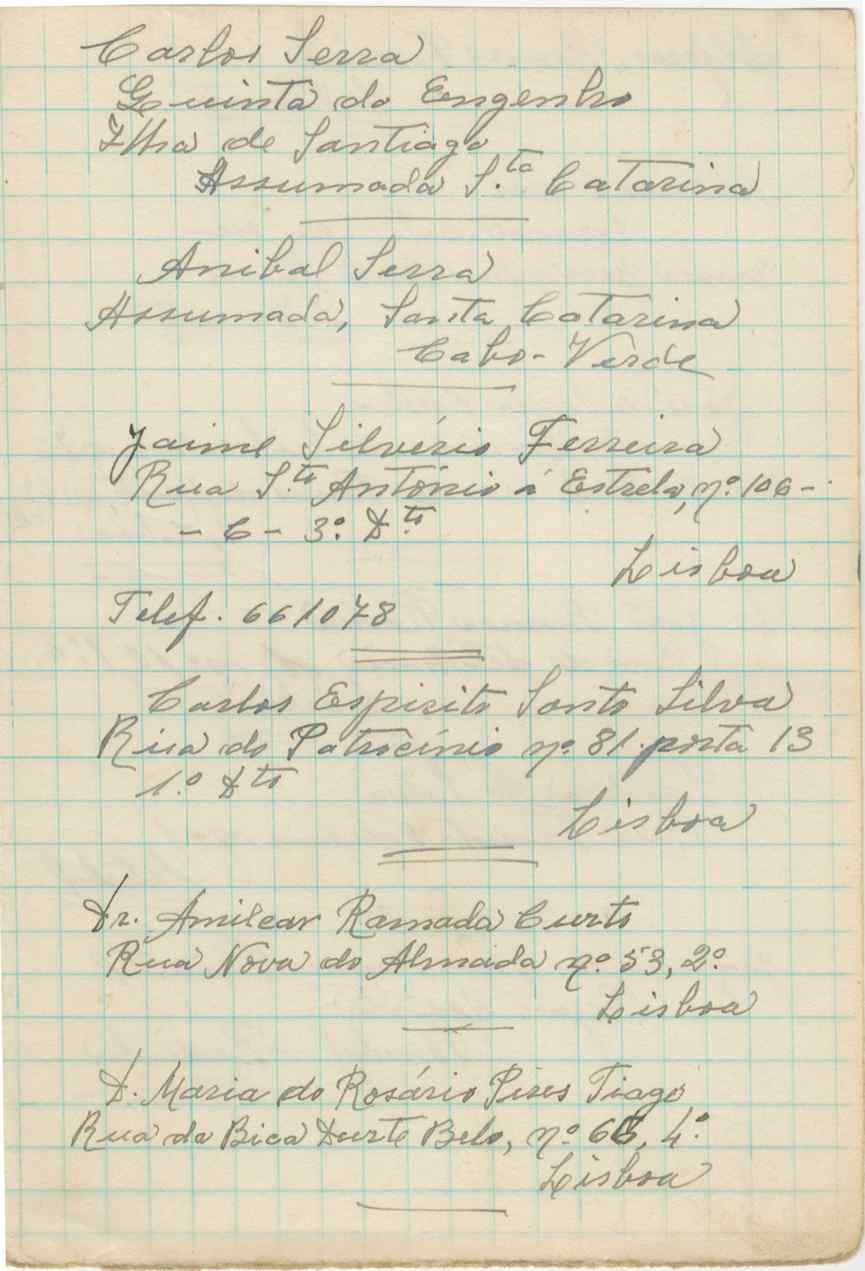 Carlos Serra
Quinta do Engenho
Ilha de Santiago
Assumada S.ta Catarina
Anibal Serra
Assumada, Santa Catarina
Cabo-Verde
Jaime Silvério Ferreira
Rua S.to António à Estrela, nº 106 -
- C - 3º Dto
Lisboa
Telef. 661078
Carlos Espirito Santo Silva
Rua do Patrocínio nº 81. porta 13
1.º Dto
Lisboa
Dr. Amilcar Ramada Curto
Rua Nova do Almada nº 53, 2º
Lisboa
D. Maria do Rosário Pires Tiago
Rua da Bica Durte Belo, nº 4º
Lisboa